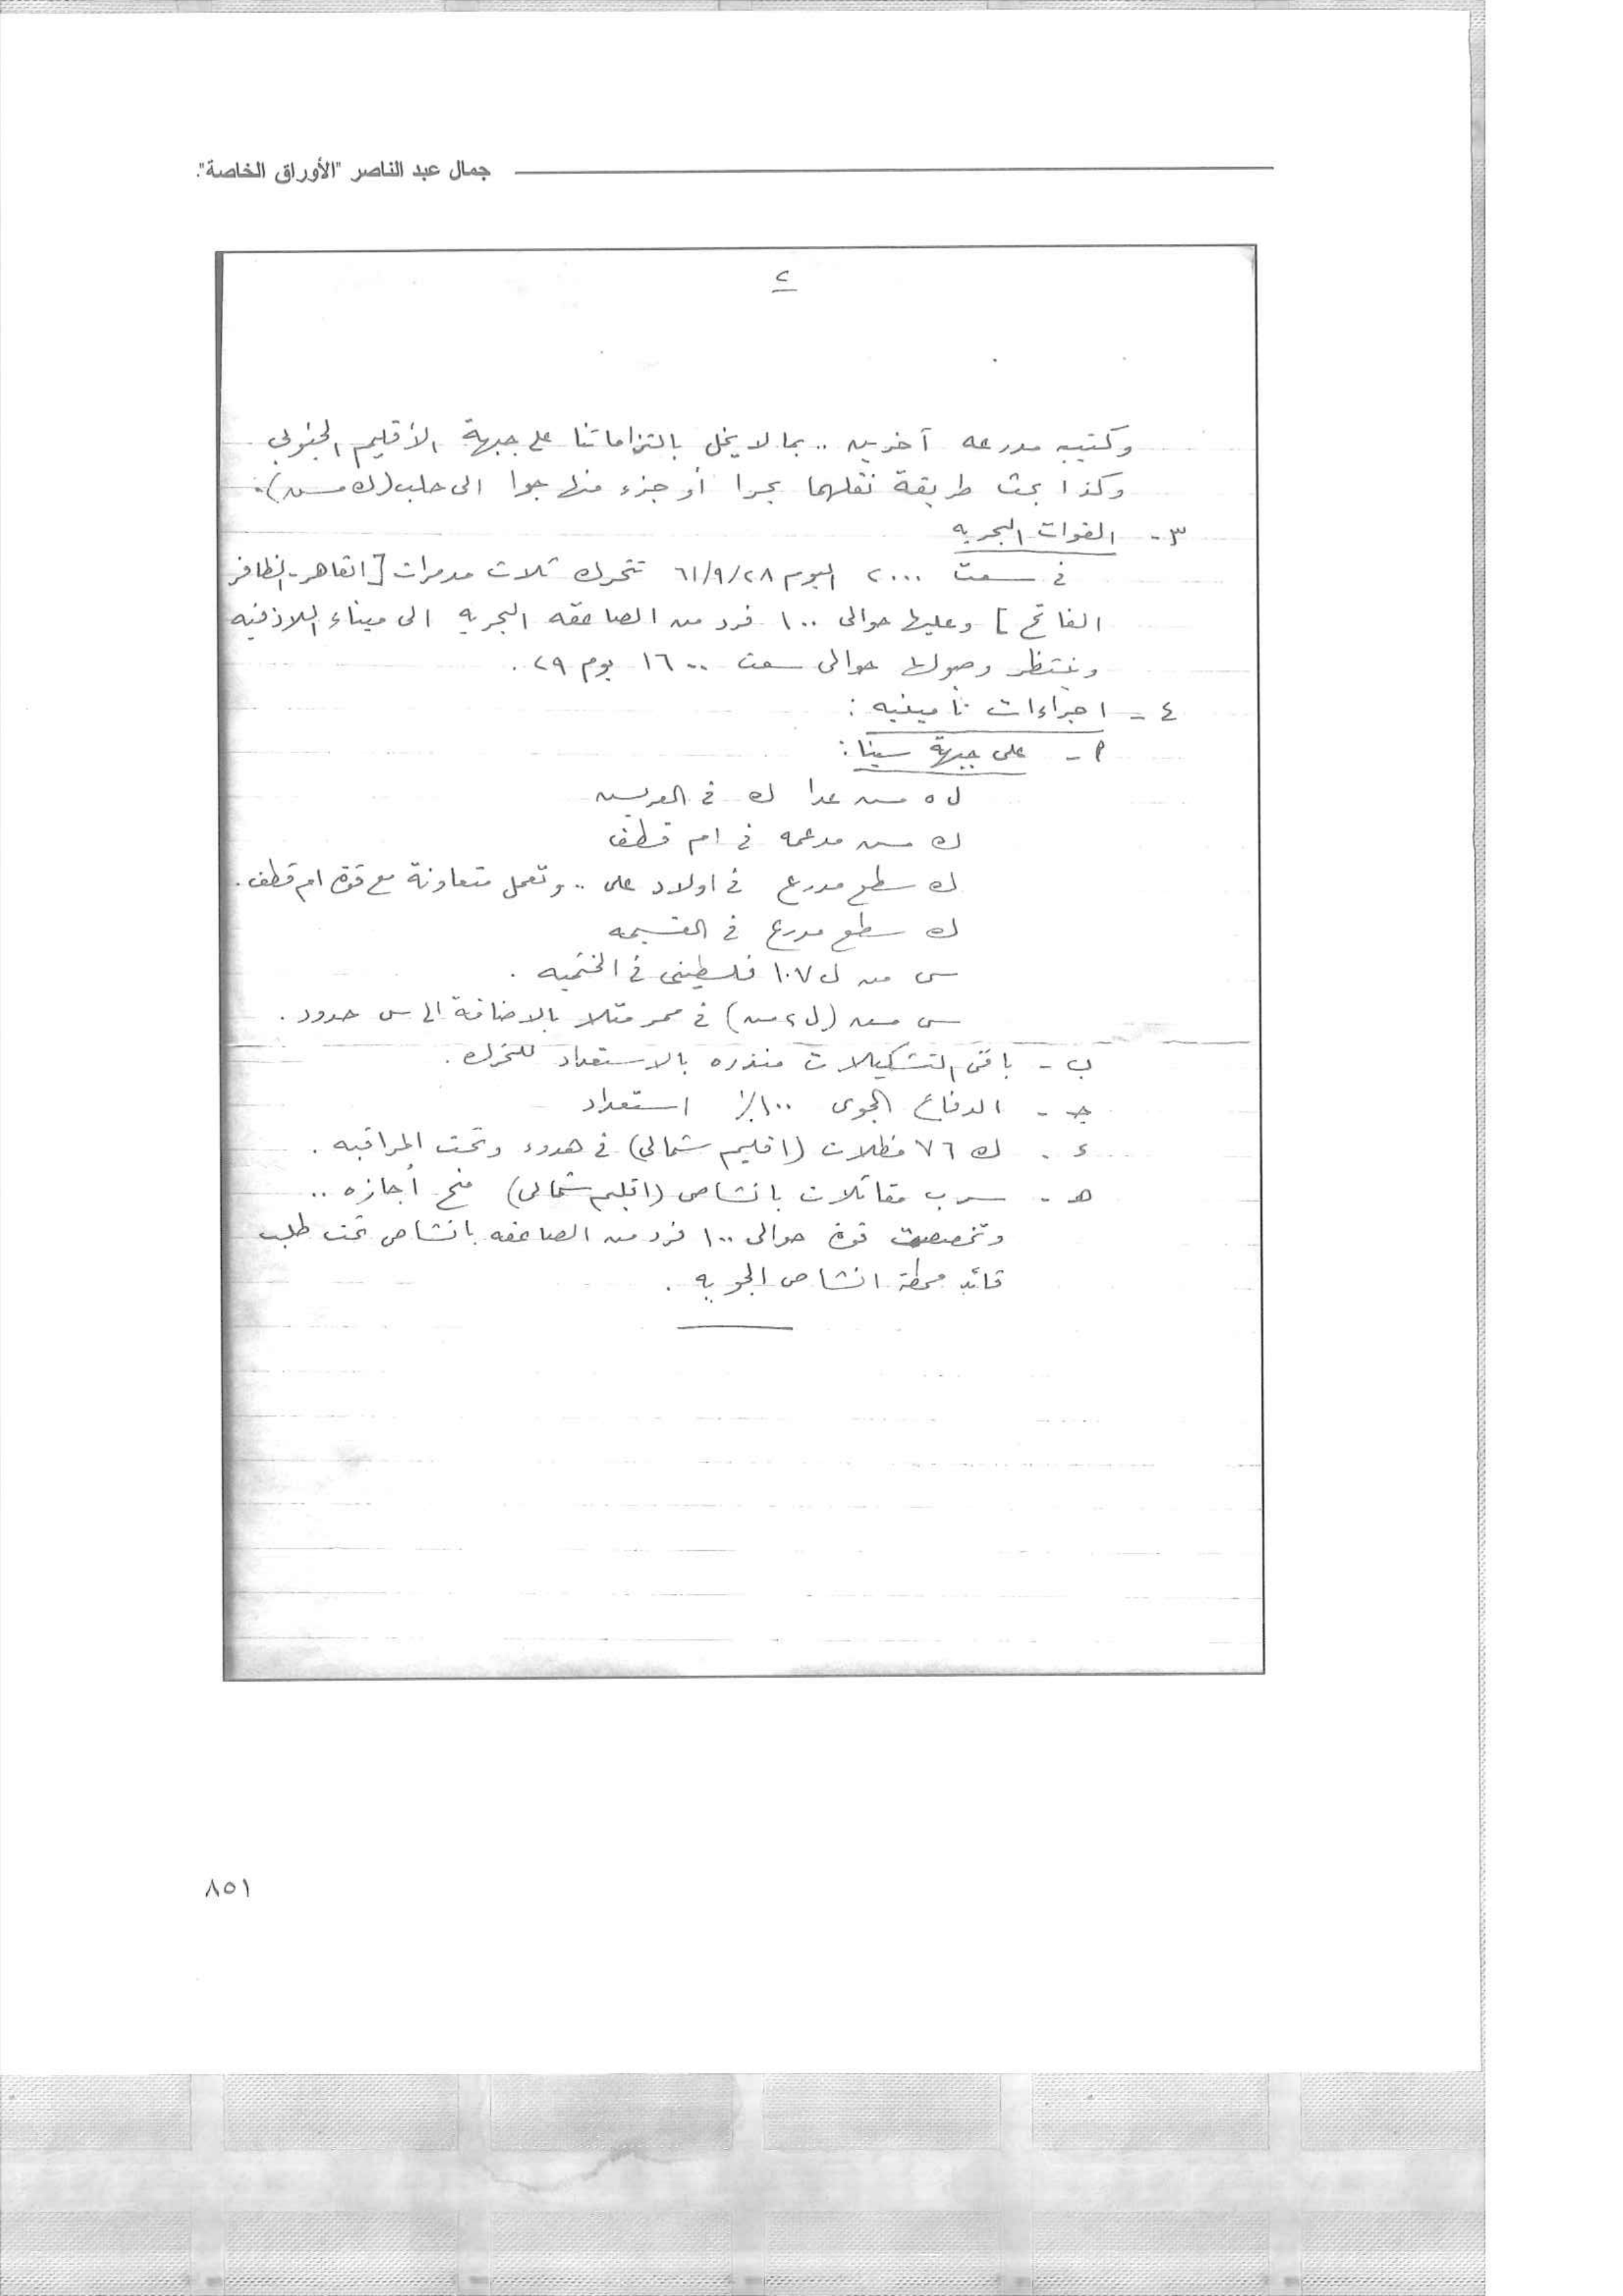 جمال عبد الناصر "الأوراق الخاصة".
٢
وكتيبه مدرعه آخريه .. بما لا يخل بالتزاماتنا على جبهة الأقليم الجنوبى
وكذا بحث طريقة نقلهما بحرا أو جزء منها جوا الى حلب (ك مسه).
٣ - القوات البحريه
فى سعت ٢٠٠٠ اليوم ٦١/٩/٢٨ تتحرك ثلاث مدمرات [القاهر - الظافر
الفاتح] وعليها حوالى ١٠٠ فرد من الصاعقه البحريه الى ميناء اللاذقيه
وينتظر وصولها حوالى سعت ١٦٠٠ يوم ٢٩ .
٤ - اجراءات تأمينيه :
أ - على جبهة سينا :
ل ٥ مس عدا ك فى العريش
ك مس مدعمه فى ام قطف
ك سطع مدرع فى اولاد على .. وتعمل متعاونة مع قوة ام قطف .
ك سطع مدرع فى القسيمه
س من ل ١٠٧ فلسطينى فى الختميه .
س مس (ل ٢ مس) فى ممر متلا بالاضافة الى س حدود .
ب - باقى التشكيلات منذره بالاستعداد للتحرك .
جـ - الدفاع الجوى ١٠٠٪ استعداد
ء - ك ٧٦ مظلات (اقليم شمالى) فى هدوء وتحت المراقبه .
هـ - سرب مقاتلات بانشاص (اقليم شمالى) منح أجازه ..
وتخصصت قوة حوالى ١٠٠ فرد من الصاعقه بانشاص تحت طلب
قائد محطة انشاص الجويه .
٨٥١